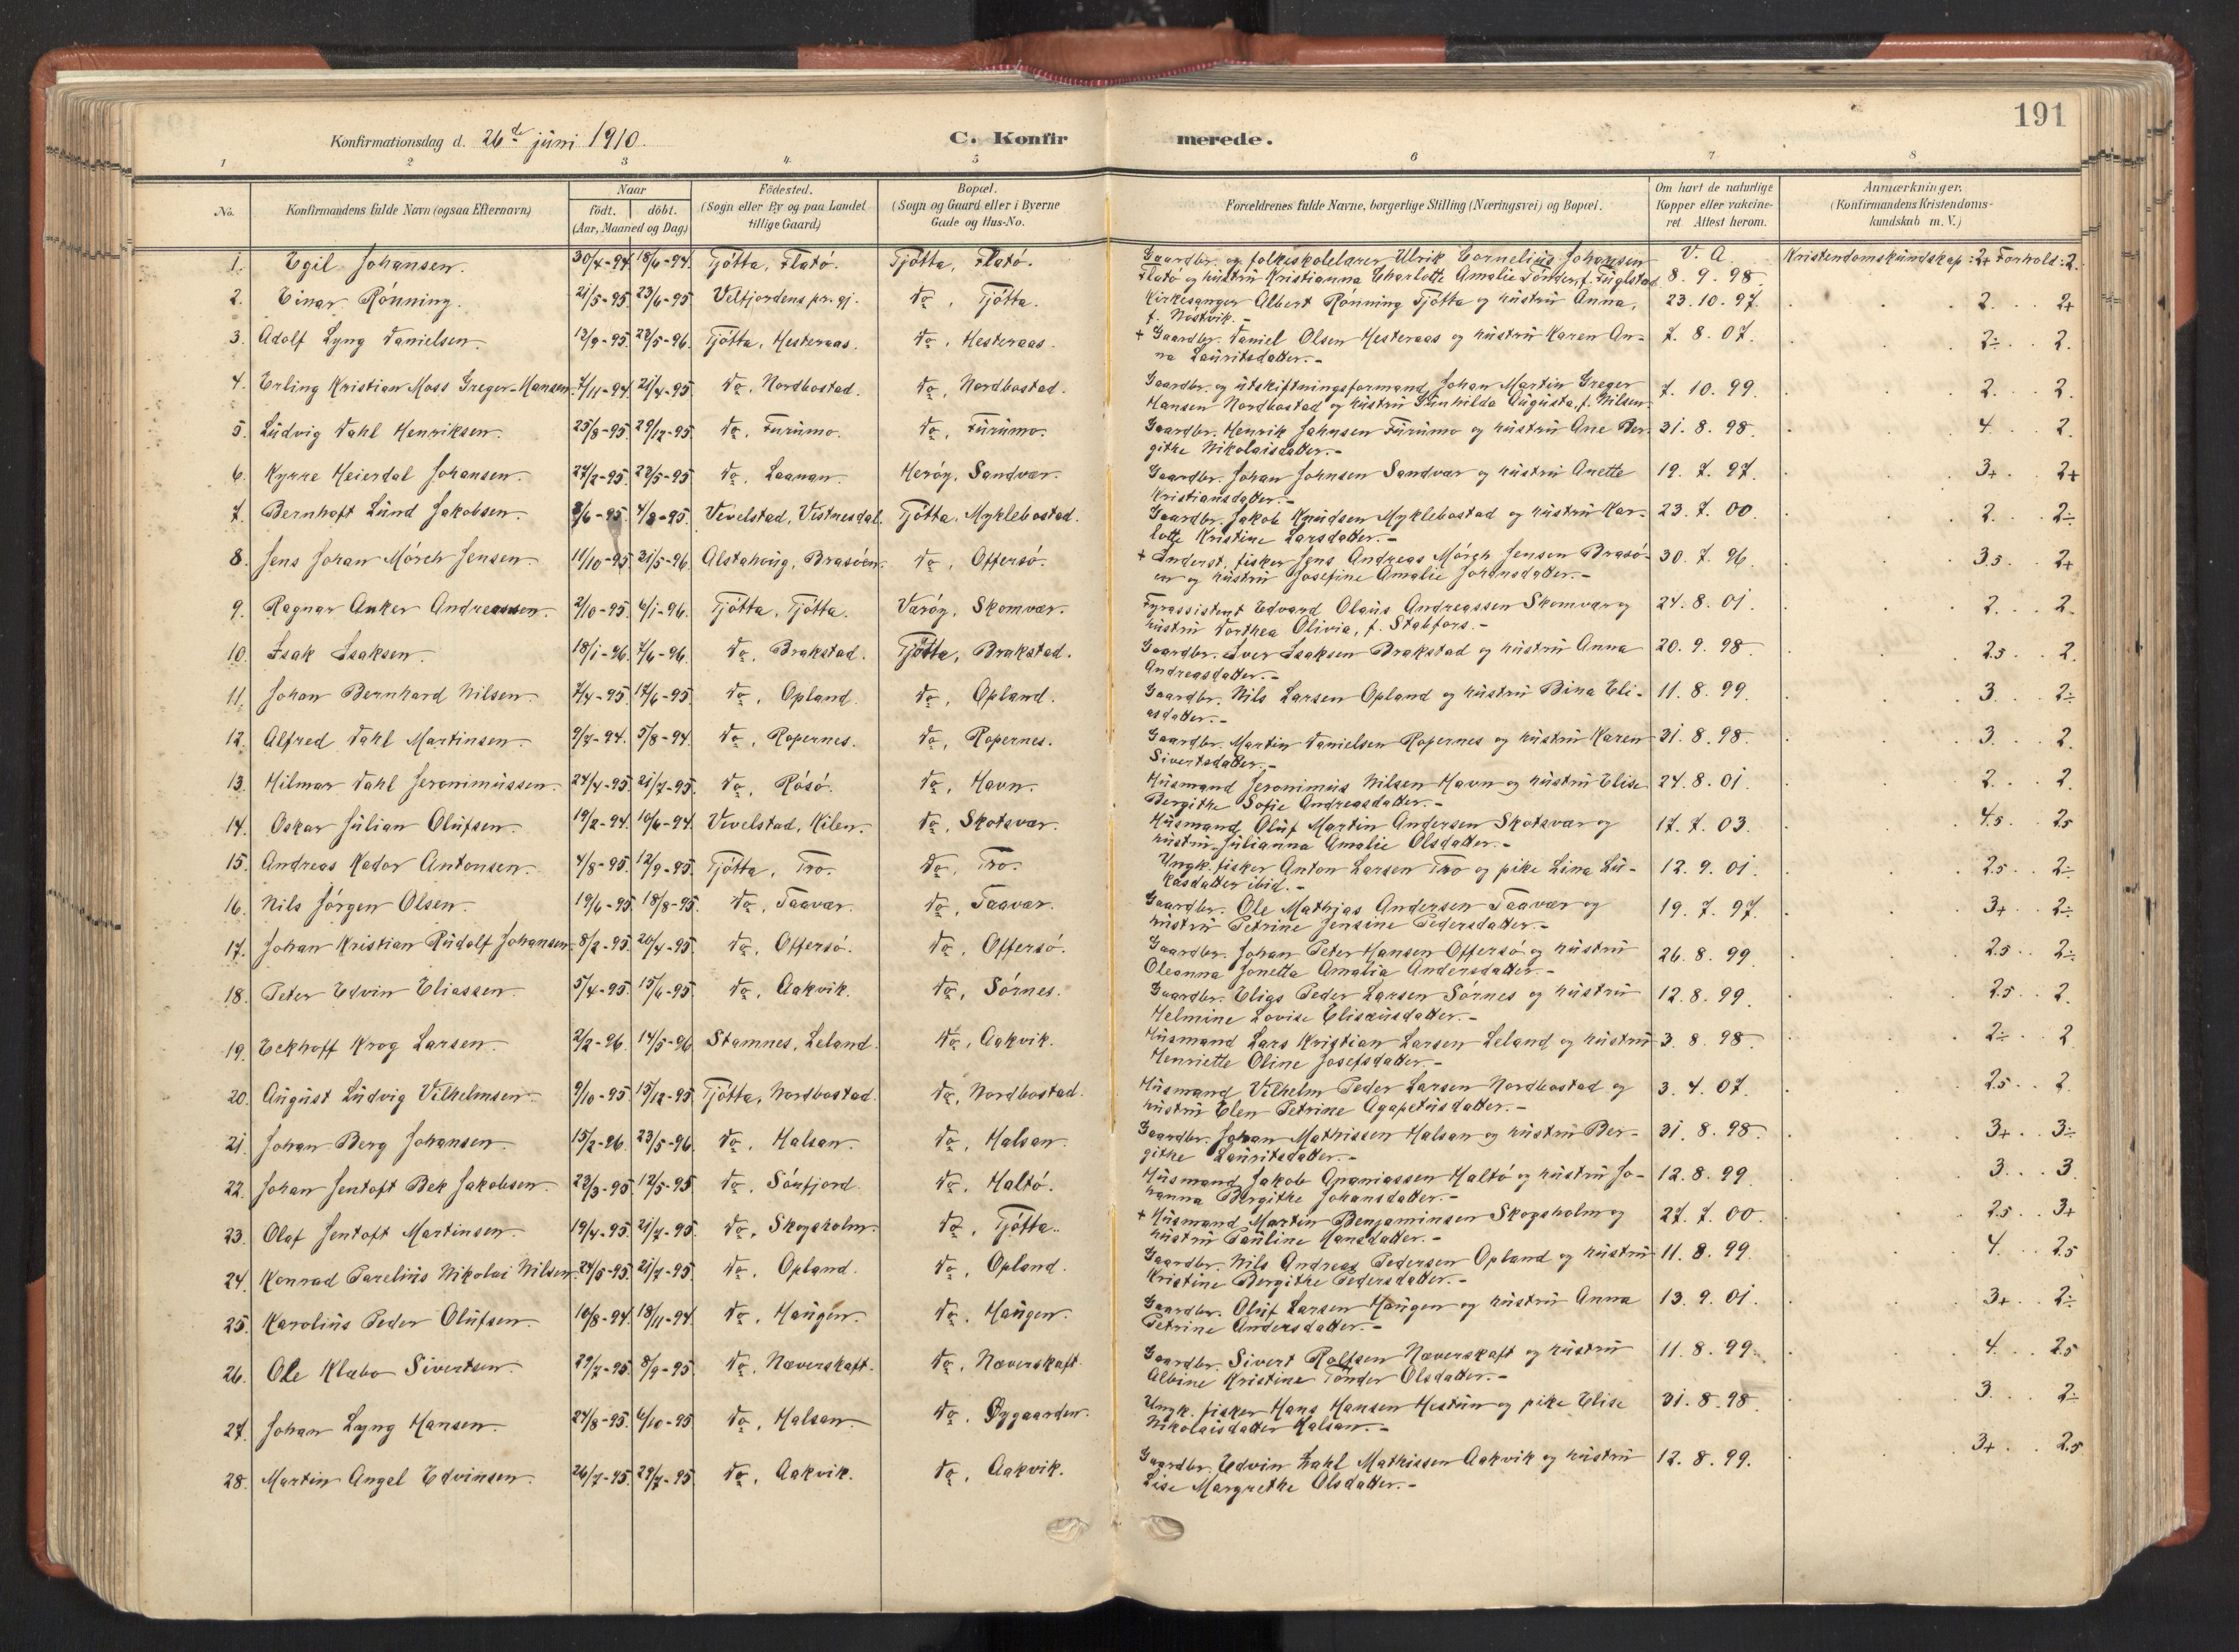 191
Konfirmationsdag d. 26de juni 1910.
C. Konfirmerede.
1 2 3 4. 5 6 7 8
No. Konfirmandens fulde Navn (ogsaa Efternavn) Naar födt. döbt. (Aar, Maaned og Dag) Födested. (Sogn eller By og paa Landet tillige Gaard) Bopæl. (Sogn og Gaard eller i Byerne Gade og Hus-No. Forældrenes fulde Navne, borgerlige Stilling (Næringsvei) og Bopæl. Om havt de naturlige Kopper eller vakcineret. Attest herom. Anmærkninger. (Konfirmandens Kristendomskundskab m. V.)
1. Egil Johansen. 30/4-94. 18/6-94. Tjótta, Flató. Tjótta, Flató. Gaardbr. og folkeskolelærer Ulrik Cornelius Johansen V. A. Kristendomskundskap: 2+ Forhold: 2.
Flató og hustru Kristianna Charlotte Amalie Tónder, f. Fuglstad 8. 9. 98.
2. Einar Rónning. 21/5-95 23/6-95. Velfjordens pr.gj. do, Tjótta. Kirkesanger Albert Rónning Tjótta og hustru Anna, 23. 10. 97. 2. 2+
f. Nóstvik.-
3. Adolf Lyng Danielsen. 13/9-95. 22/5-96. Tjótta, Hesteraas. do, Hesteraas. + Gaardbr. Daniel Olsen Hesteraas og hustru Karen An- 7. 8. 07. 2÷ 2.
na Lauritsdatter.-
4. Erling Kristian Moss Greger-Hansen. 7/11-94. 21/4-95. do, Nordbostad. do, Nordbostad. Gaardbr. og utskiftningsformand Johan Martin Greger 7. 10. 99. 2. 2.
Hansen Nordbostad og hustru Gunhilda Augusta, f. Nilsen.
5. Ludvig Dahl Henriksen. 25/8-95. 29/12-95. do, Furumo. do, Furumo. Gaardbr. Henrik Jahnsen Furumo og hustru Ane Ber- 31. 8. 98. 4 2.
githe Nikolaisdatter.-
6. Kyrre Heierdal Johansen. 27/2-95. 23/5-95 do, Laanan. Heróy, Sandvær. Gaardbr. Johan Johnsen Sandvær og hustru Anette 19. 7. 97. 3+. 2+
Kristiansdatter.-
7. Bernhoft Lund Jakobsen. 3/6-95. 4/8-95. Vevelstad, Vistnesdal. Tjótta, Myklebostad. Gaardbr. Jakob Knudsen Myklebostad og hustru Kar- 23. 7. 00. 2. 2÷
lotte Kristine Larsdatter.-
8. Jens Johan Mórch Jensen. 11/10-95 21/5-96. Alstahoug, Brasóen. do, Offersó. + Inderst, fisker Jens Andreas Mórch Jensen Brasó- 30. 7. 96. 3.5. 2+
en og hustru Josefine Amalie Johansdatter.-
9. Ragnar Anker Andreassen. 2/10-95. 6/1-96. Tjótta, Tjótta. Væróy, Skomvær. Fyrassistent Edvard Olaus Andreassen Skomvær og 24. 8. 01. 2. 2.
hustru Dorthea Olivia, f. Stabfors.-
10. Isak Isaksen. 18/1-96. 7/6-96. do, Brakstad. Tjótta, Brakstad. Gaardbr. Iver Isaksen Brakstad og hustru Anna 20. 9. 98. 2.5. 2.
Andreasdatter.-
11. Johan Bernhard Nilsen. 7/4-95. 17/6-95. do, Opland. do, Opland. Gaardbr. Nils Larsen Opland og hustru Bina Eli- 11. 8. 99. 3. 2÷
asdatter.-
12. Alfred Dahl Martinsen. 9/7-94. 5/8-94. do, Ropernes. do, Ropernes. Gaardbr. Martin Danielsen Ropernes og hustru Karen 31. 8. 98. 3. 2.
Sivertsdatter.-
13. Hilmar Dahl Jeronimussen. 24/4-95. 21/7-95. do, Rósó. do, Havn. Husmand Jeronimus Nilsen Havn og hustru Elise 24. 8. 01. 2. 2.
Bergithe Sofie Andreasdatter.-
14. Oskar Julian Olufsen. 19/2-94. 10/6-94. Vevelstad, Kilen. do, Skotsvær. Husmand Oluf Martin Andersen Skotsvær og 17. 7. 03. 4.5. 2.5
hustru Julianna Amalie Olsdatter.-
15. Andreas Kador Antonsen. 4/8-95. 12/9-95. Tjótta, Tro. do, Tro. Ungk. fisker Anton Larsen Tro og pike Lina Lu- 12. 9. 01. 2.5. 2÷
kasdatter ibid.-
16. Nils Jórgen Olsen. 19/6-95. 18/8-95. do, Taavær. do, Taavær. Gaardbr. Ole Mathias Andersen Taavær og 19. 7. 97. 3+. 2÷
hustru Petrine Jensine Pedersdatter.-
17. Johan Kristian Rudolf Johansen. 8/2-95. 20/4-95. do, Offersó. do, Offersó. Gaardbr. Johan Peter Hansen Offersó og hustru 26. 8. 99. 2.5. 2÷
Oleanna Jonetta Amalia Andersdatter.-
18. Peter Edvin Eliassen. 5/4-95. 15/6-95. do, Aakvik. do, Sórnes. Gaardbr. Elias Peder Larsen Sórnes og hustru 12. 8. 99. 2.5. 2.
Helmine Lovise Elisæusdatter.-
19. Eckhoff Krog Larsen. 2/2-96. 14/5-96 Stamnes, Leland. do, Aakvik. Husmand Lars Kristian Larsen Leland og hustru 3. 8. 98. 2÷ 2
Henriette Oline Josefsdatter.-
20. August Ludvig Vilhelmsen. 9/10-95 15/12-95 Tjótta, Nordbostad. do, Nordbostad. Husmand Vilhelm Peder Larsen Nordbostad og 3. 4. 07. 2.5. 2.
hustru Elen Petrine Agapetusdatter.-
21. Johan Berg Johansen. 15/2-96. 23/5-96. do, Halsan. do, Halsan. Gaardbr. Johan Mathissen Halsan og hustru Ber- 31. 8. 98. 3+. 3÷
githe Lauritsdatter.-
22. Johan Jentoft Bek Jakobsen. 23/3-95 12/5-95 do, Sórfjord. do, Haltó. Husmand Jakob Ananiassen Haltó og hustru Jo- 12. 8. 99. 3. 3.
hanna Bergithe Johansdatter.-
23. Olaf Jentoft Martinsen. 19/4-95. 21/7-95. do, Skogsholm. do, Tjótta. + Husmand Martin Benjaminsen Skogsholm og 27. 7. 00. 2.5. 3+
hustru Pauline Hansdatter.-
24. Konrad Parelius Nikolai Nilsen. 24/5-95. 21/7-95. do, Opland. do, Opland. Gaardbr. Nils Andreas Pedersen Opland og hustru 11. 8. 99. 4. 2.5
Kristine Bergithe Pedersdatter.-
25. Karolius Peder Olufsen. 10/8-94. 18/11-94. do, Haugen. do, Haugen. Gaardbr. Oluf Larsen Haugen og hustru Anna 13. 9. 01. 3+. 2÷
Petrine Andersdatter.-
26. Ole Klæbo Sivertsen. 29/7-95. 8/9-95. do, Næverskaft. do, Næverskaft. Gaardbr. Sivert Rolfsen Næverskaft og hustru 11. 8. 99. 4. 2.5
Albine Kristine Tónder Olsdatter.-
27. Johan Lyng Hansen. 24/8-95. 6/10-95 do, Halsan. do, Øygaarden. Ungk. fisker Hans Hansen Hestun og pike Elise 31. 8. 98. 3. 2÷
Nikolaisdatter Halsan.-
28. Martin Angel Edvinsen. 26/7-95. 29/7-95 do, Aakvik. do, Aakvik. Gaardbr. Edvin Zahl Mathissen Aakvik og hustru 12. 8. 99. 3+. 2.5
Lise Margrethe Olsdatter.-